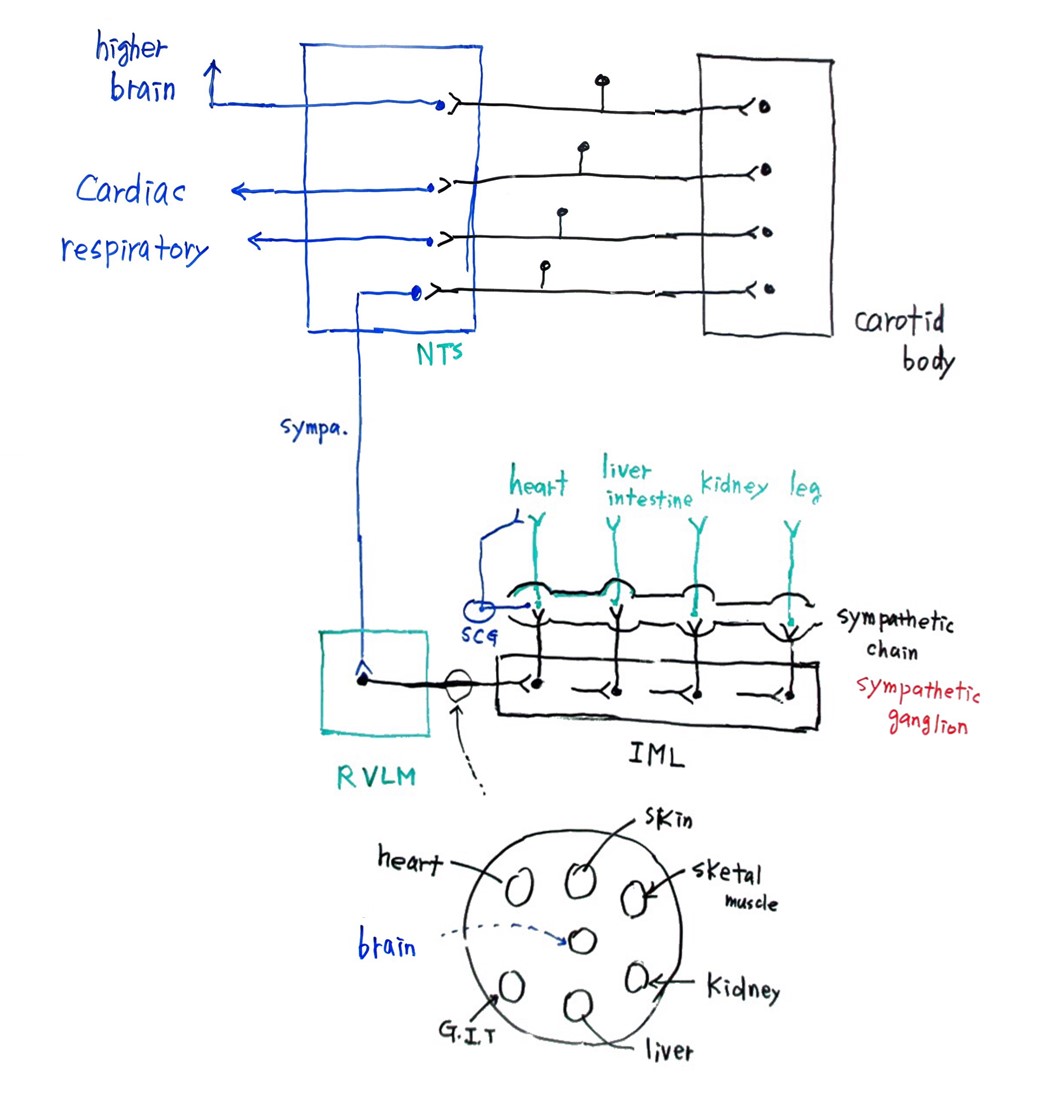 higher
brain
Cardiac
respiratory
NTS
carotid
body
sympa.
heart
liver
intestine
kidney
leg
SCG
sympathetic
chain
sympathetic
ganglion
IML
RVLM
skin
heart
sketal
muscle
brain
Kidney
G.I.T
liver